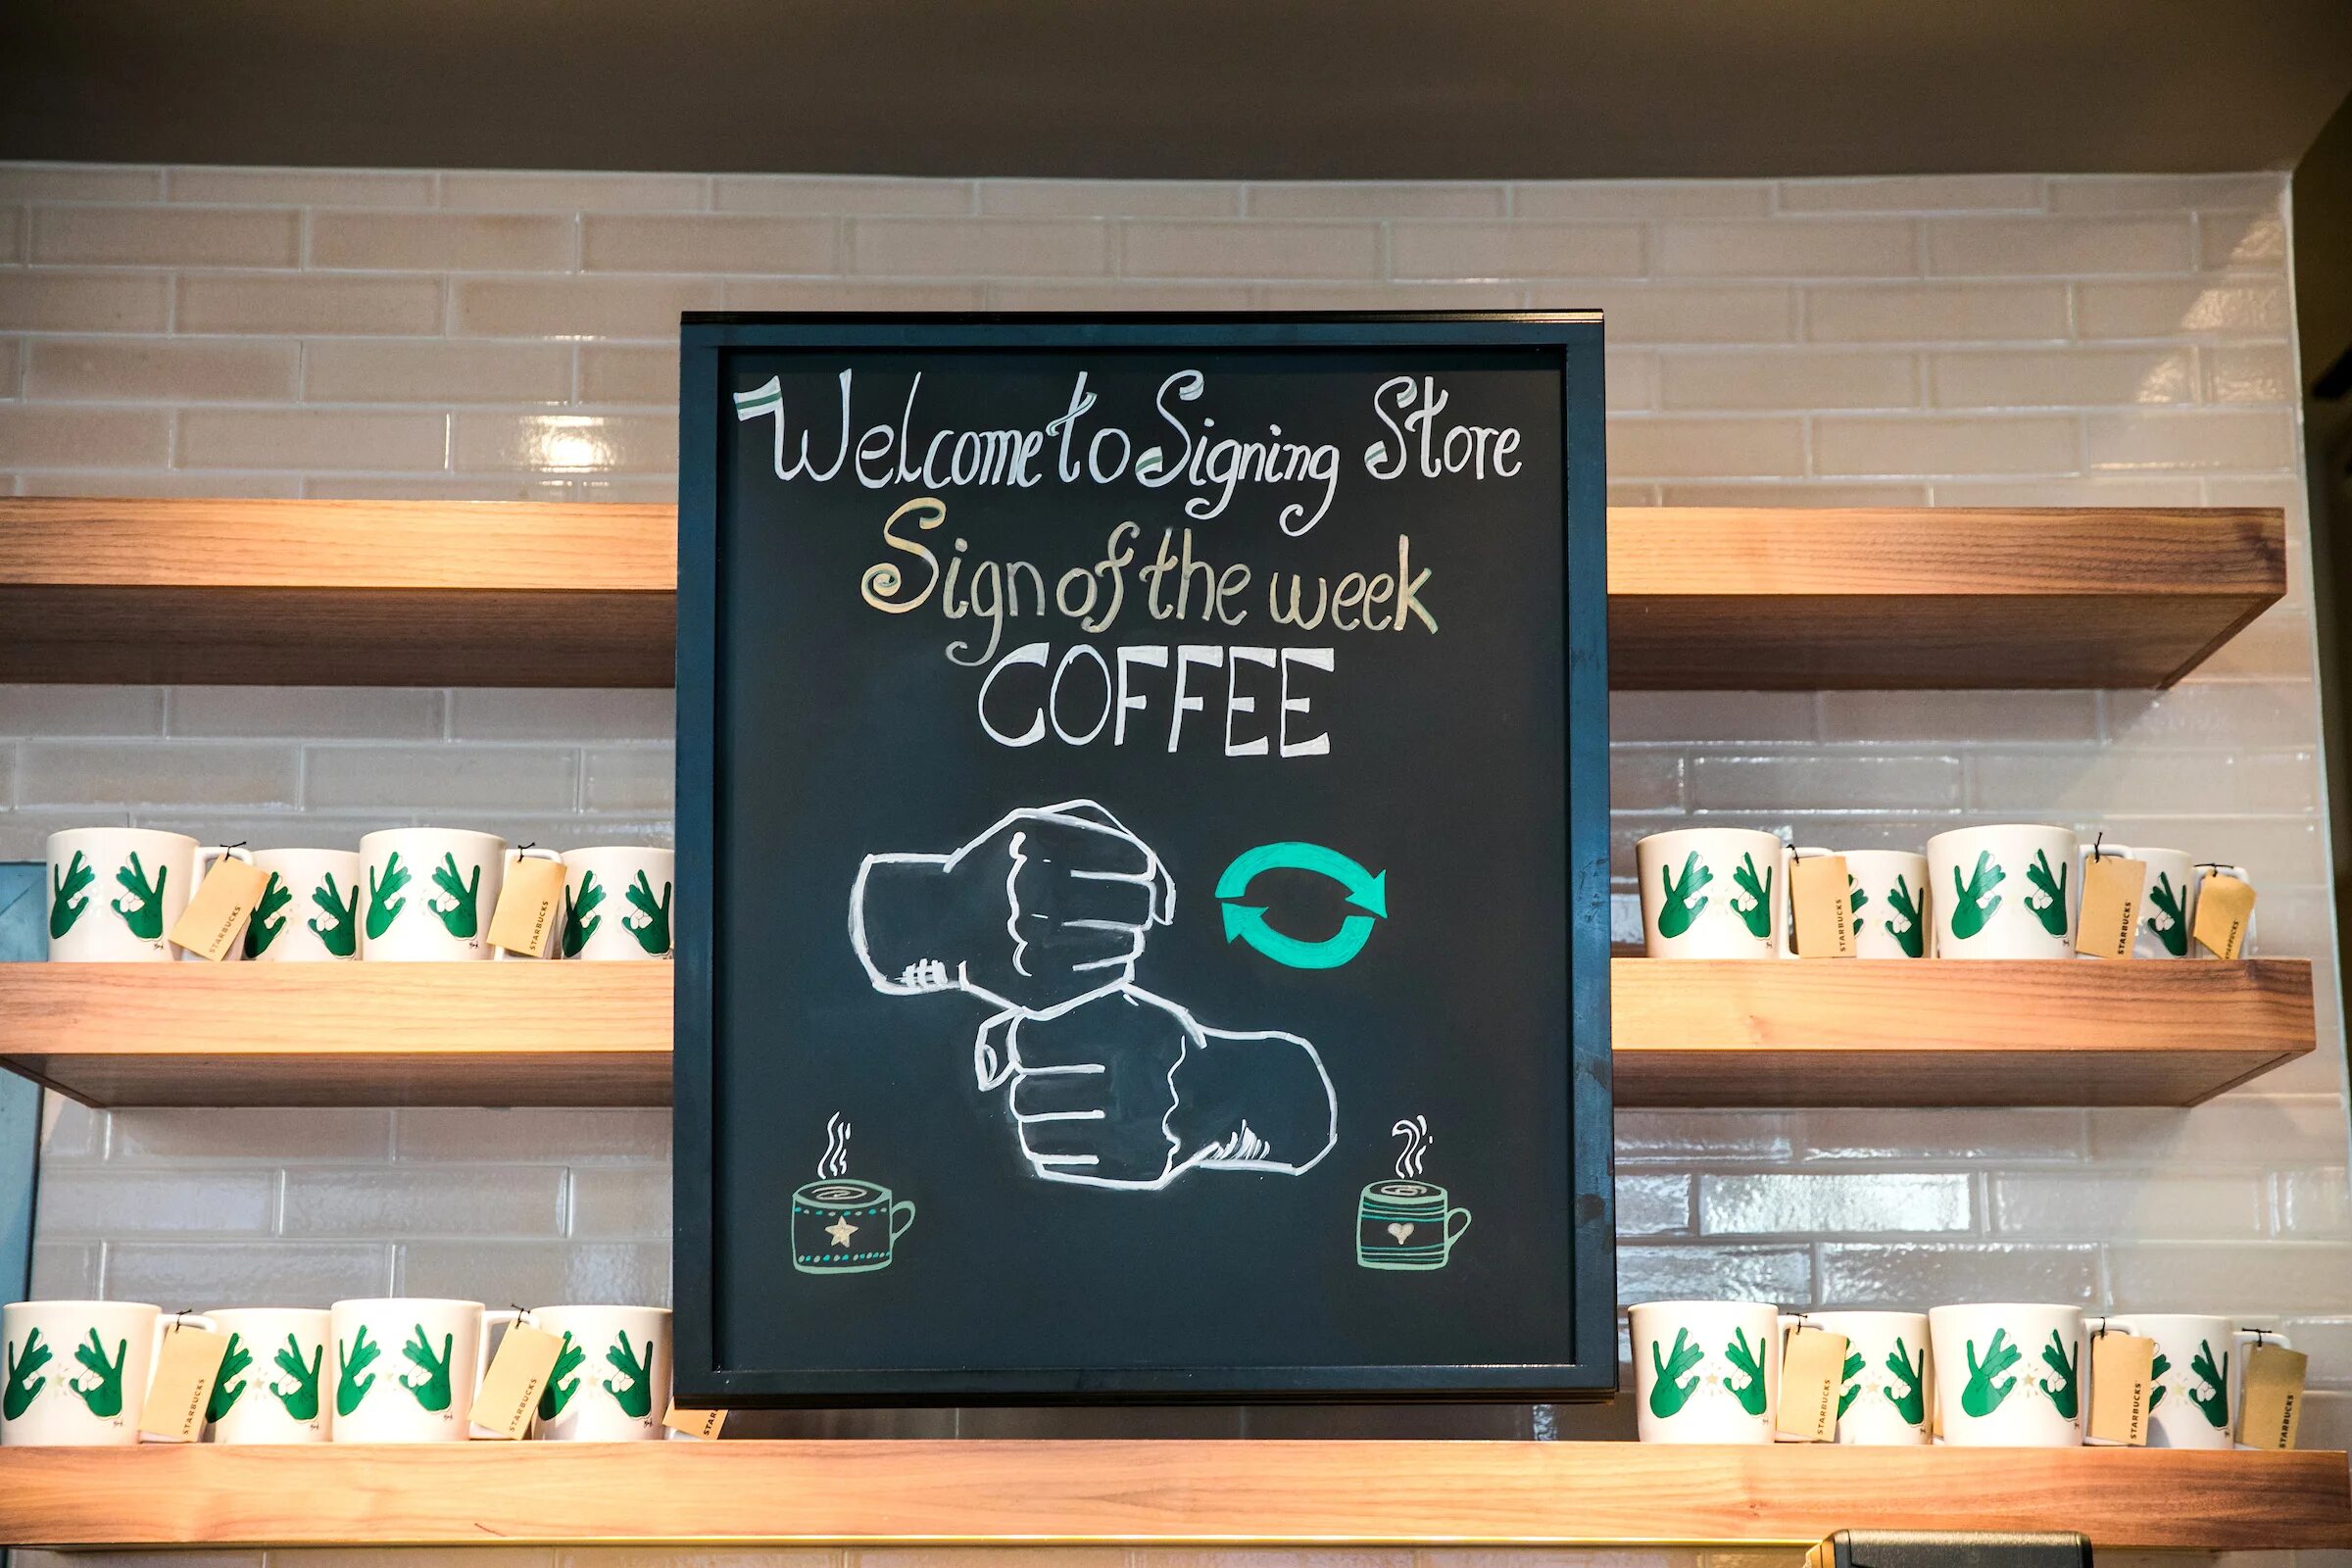 Welcome to Signing Store
Sign of the week
COFFEE
STARBUCKS
STARBUCKS
STARBUCKS
STARBUCKS
STARBUCKS
STARBUCKS
STARBUCKS
STAR
STARBUCKS
STARBUCKS
STARBUCKS